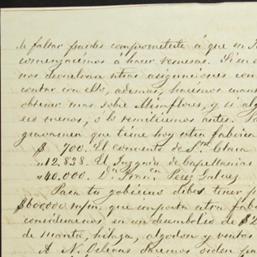 de faltar puedes comprometerte á que en
comenzaremos á hacer remesas. Si
nos devuelvan otras asignaciones con
contar con ello, además, haremos cuanto
obtener mas sobre Miraflores, y si
es menos, o lo remitiremos antes.
gravamen que tiene hoy esta fabrica
$ 700. El convento de Sta Clara
" 12,838. El Juzgado de Capellanias
" 40.000. Dn Franco Perez Galvez
Para tu gobierno debes tener
$600000 m/m, que importa esta
consideramos en un desembolso de $
de manta, hilaza, algodon y ventas
A N. Orleans haremos